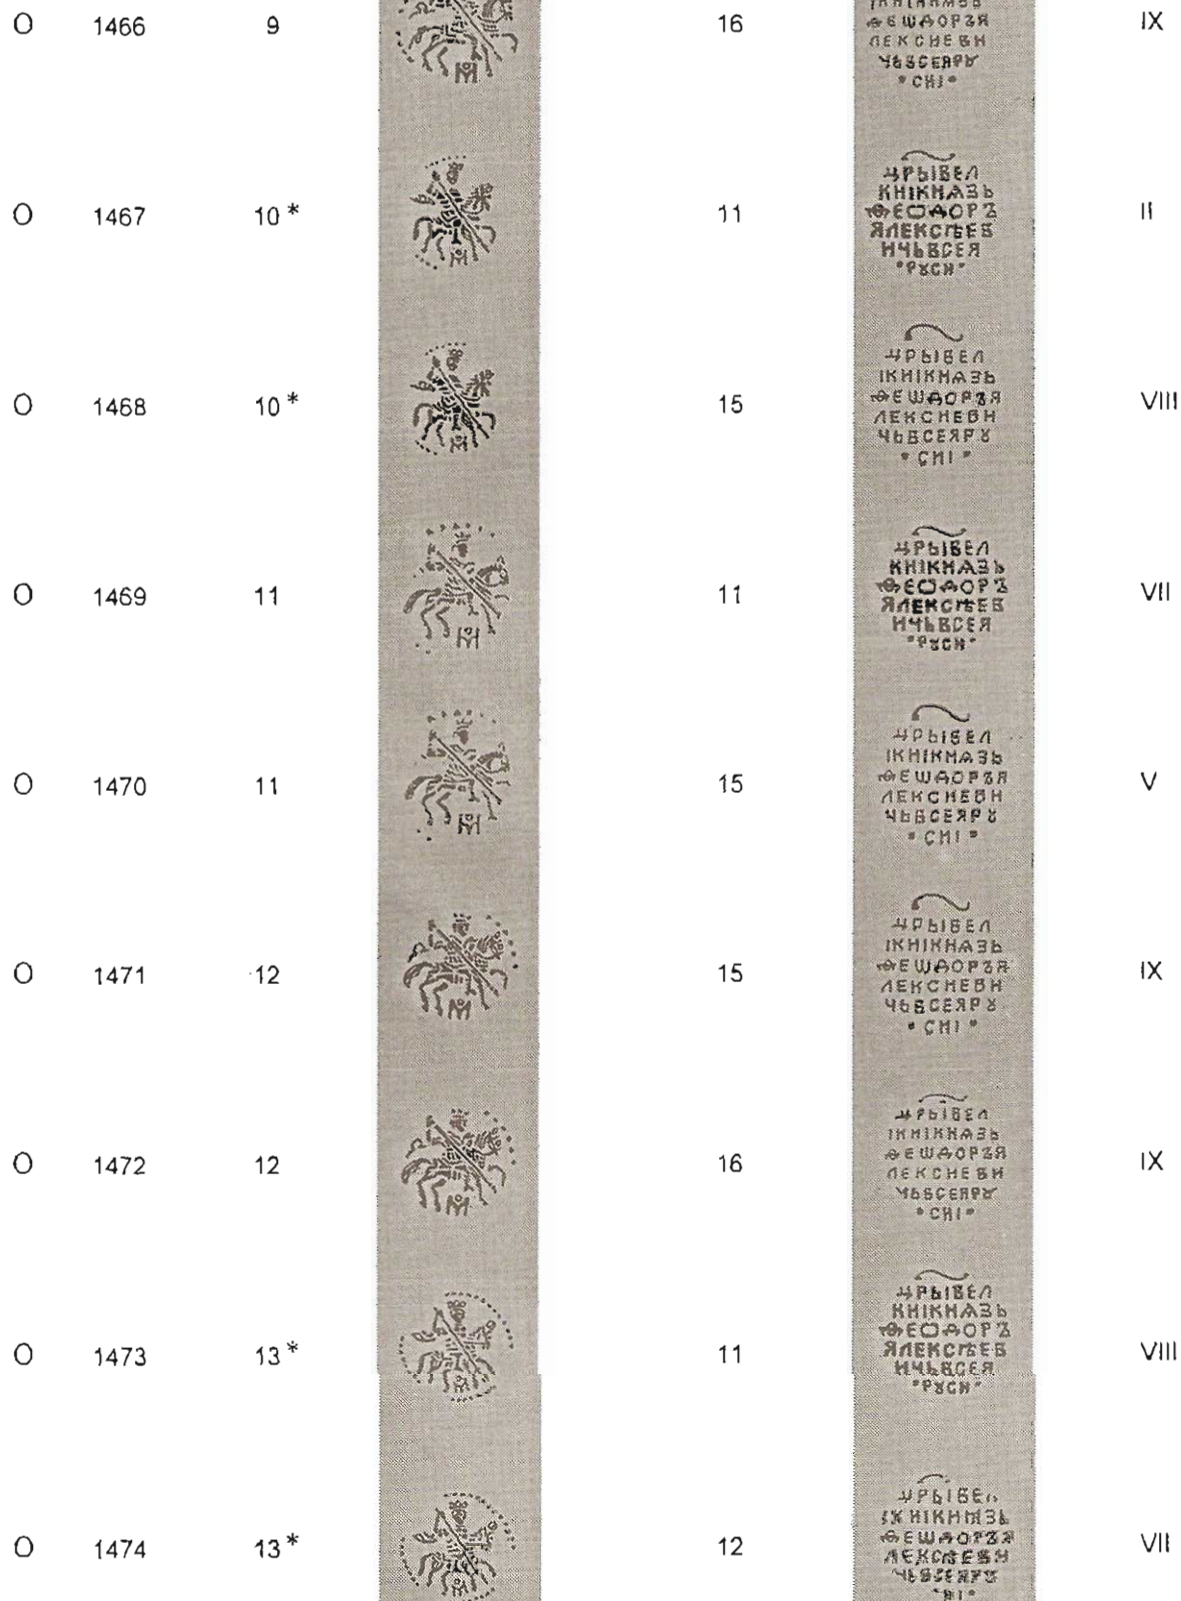 О 1466 9 16 IX
ФЕШДОРЗЯ
ЛЕКСИЕВИ
ЧЬВСЕЯРУ
СИІ
О 1467 10* 11 II
ЦРЬІВЕЛ
КНІКНАЗЬ
ФЕОДОРЪ
ЯЛЕКСѢЕВ
ИЧЬВСЕЯ
РУСИ
О 1468 10* 15 VIII
ЦРЬІВЕЛ
ІКНІКНАЗЬ
ФЕШДОРЪЯ
ЛЕКСИЕВИ
ЧЬВСЕЯРУ
СИІ
О 1469 11 11 VII
ЦРЬІВЕЛ
КНІКНАЗЬ
ФЕОДОРЪ
ЯЛЕКСѢЕВ
ИЧЬВСЕЯ
РУСИ
О 1470 11 15 V
ЦРЬІВЕЛ
ІКНІКНАЗЬ
ФЕШДОРЪЯ
ЛЕКСИЕВИ
ЧЬВСЕЯРУ
СИІ
О 1471 12 15 IX
ЦРЬІВЕЛ
ІКНІКНАЗЬ
ФЕШДОРЪЯ
ЛЕКСИЕВИ
ЧЬВСЕЯРУ
СИІ
О 1472 12 16 IX
ЦРЬІВЕЛ
ІКНІКНАЗЬ
ФЕШДОРЪЯ
ЛЕКСИЕВИ
ЧЬВСЕЯРУ
СИІ
О 1473 13* 11 VIII
ЦРЬІВЕЛ
КНІКНАЗЬ
ФЕОДОРЪ
ЯЛЕКСѢЕВ
ИЧЬВСЕЯ
РУСИ
О 1474 13* 12 VII
ЦРЬІВЕЛ
ФЕШДОРЪЯ
ЛЕКСѢЕВИ
ЧЬВСЕЯРУ